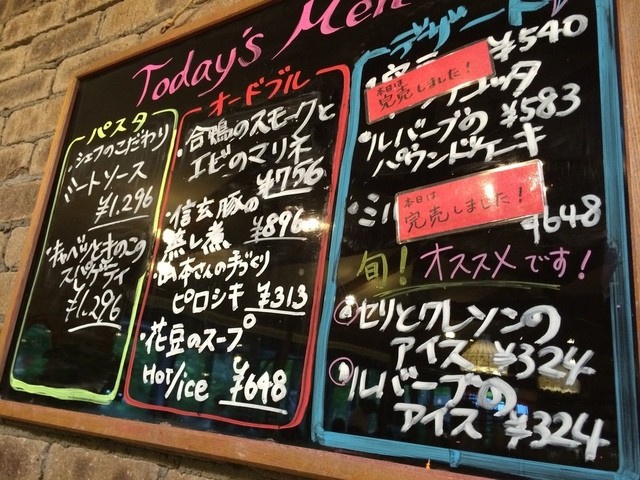 Today's Men
パスタ
・シェフのこだわり
ミートソース
¥1,296
・キャベツときのこの
スパゲティ
¥1,296
オードブル
・合鴨のスモークと
エビのマリネ
¥756
・信玄豚の
蒸し煮 ¥896
・山本さんの手づくり
ピロシキ ¥313
・花豆のスープ
Hot/ice ¥648
デザート
¥540
本日は
完売しました!
・ルバーブの ¥583
パウンドケーキ
本日は
完売しました!
¥648
旬!オススメです!
セリとクレソンの
アイス ¥324
ルバーブの
アイス ¥324